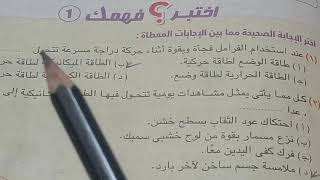 اختبر فهمك 1
اختر الإجابة الصحيحة مما بين الإجابات المعطاة :
(١) عند استخدام الفرامل فجأة وبقوة أثناء حركة دراجة مسرعة تتحول
(أ) طاقة الوضع لطاقة حركية. (ب) الطاقة الميكانيكية لطاقة
(ج) الطاقة الحرارية لطاقة وضع. (د) الطاقة لطاقة حركية.
(٢) كل مما يأتى يمثل مشاهدات يومية تتحول فيها الطاقة الميكانيكية إلى
عدا
(أ) احتكاك عود الثقاب بسطح خشن.
(ب) نزع مسمار بقوة من لوح خشبى سميك.
(ج) فرك كفى اليدين معًا.
(د) ملامسة جسم ساخن لآخر بارد.